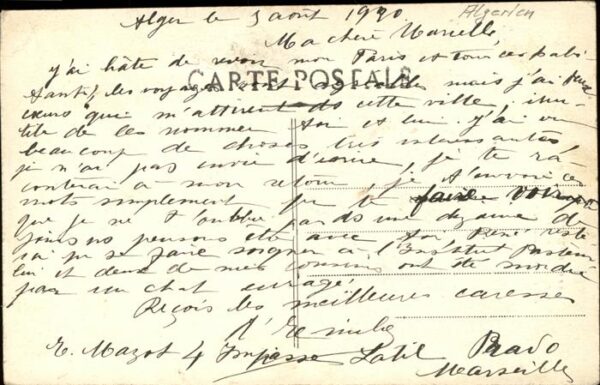 Alger le 5 août 1920
Algerien
Ma chère Marcelle,
j'ai hâte de revoir mon Paris et tou ces habi
CARTE POSTALE
tants, les voyages mais j'ai
cœurs qui m'attirent ds cette ville, inu-
tile de les nommer toi et lui. j'ai vu
beaucoup de choses très intéressantes
je n'ai pas envie d'écrire, je te ra-
conterai à mon retour, je t'envoie ces
mots simplement pr te faire voir
que je ne t'oublie pas ds une dizaine de
jours ns pensons être avec toi René reste
ici pr se faire soigner à l'Institut Pasteur
lui et deux de mes cousins ont été mordu
par un chat enragé.
Reçois les meilleures caresses
d'Emilie
E. Mazot 4 Impasse Latil Prado
Marseille